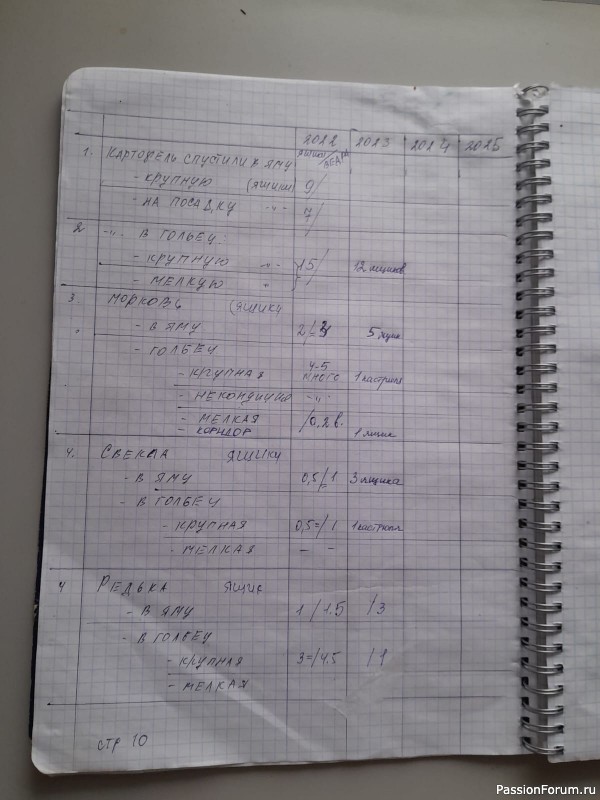 2022 2023 2024 2025
ящики/ведра
1. КАРТОФЕЛЬ СПУСТИЛИ В ЯМУ
- КРУПНУЮ (ЯЩИКИ) 9/
- НА ПОСАДКУ -"- 7/
2 -"- В ГОЛБЕЦ:
- КРУПНУЮ -"- 15/ 12 ящиков
- МЕЛКУЮ "
3. МОРКОВЬ (ЯЩИКИ
- В ЯМУ 2/ 5 ящик
- ГОЛБЕЦ
- КРУПНАЯ 4-5 МНОГО 1 кастрюля
- НЕКОНДИЦИЯ -"-
- МЕЛКАЯ /0,2 в.
- КОРИДОР 1 ящик
4. СВЕКЛА ЯЩИКИ
- В ЯМУ 0,5/1 3 ящика
- В ГОЛБЕЦ
- КРУПНАЯ 0,5=/1 1 кастрюл
- МЕЛКАЯ - -
4 РЕДЬКА ЯЩИК
- В ЯМУ 1/1.5 /3
- В ГОЛБЕЦ
- КРУПНАЯ 3=/4.5 /1
- МЕЛКАЯ
стр 10
PassionForum.ru